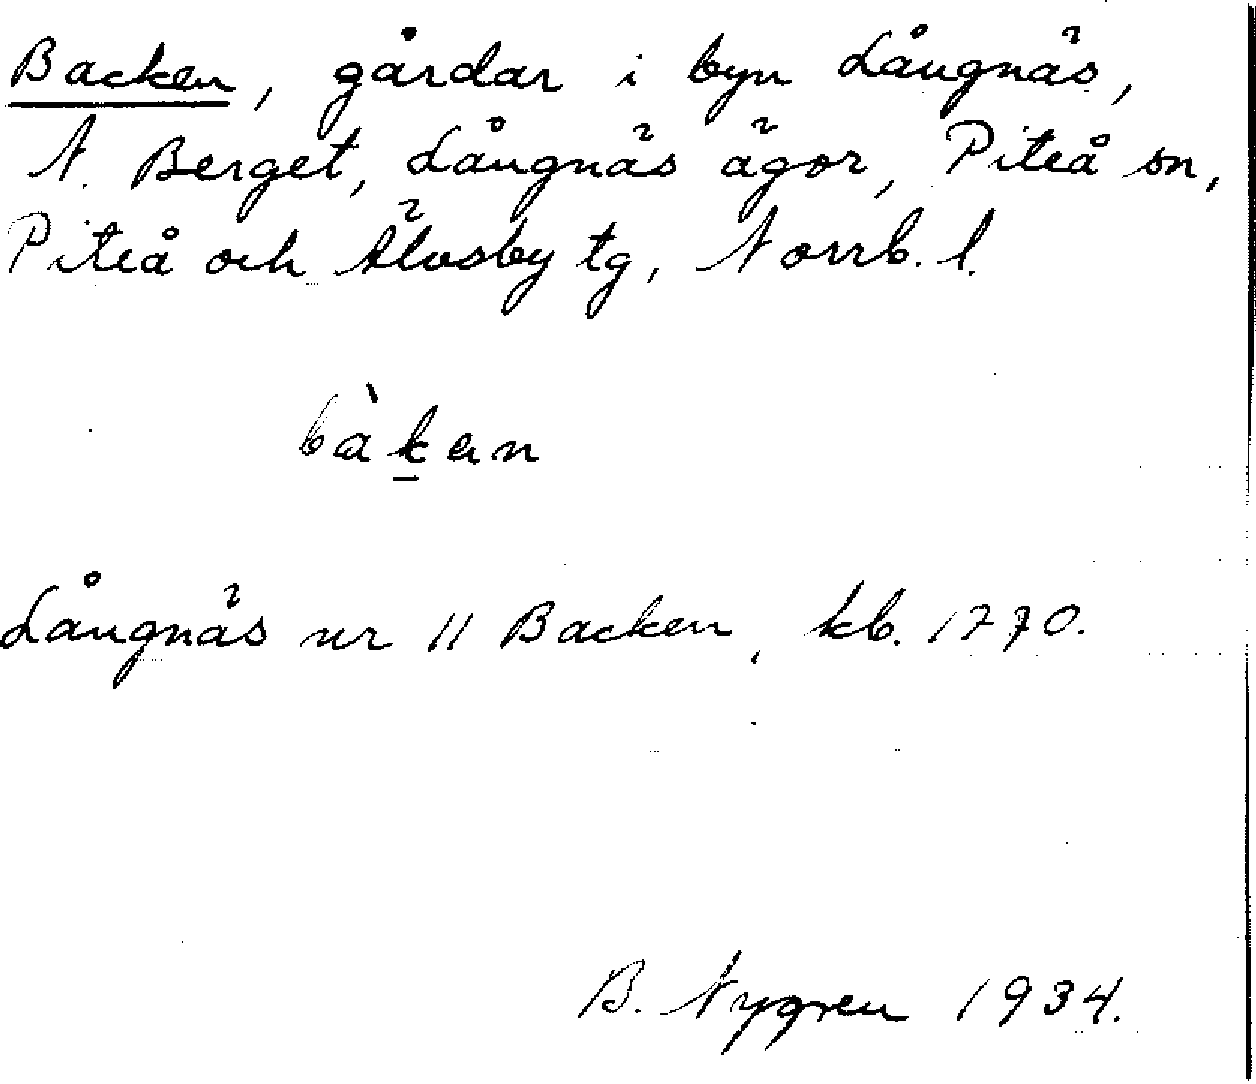 Backen, gårdar i byn Långnäs,
N. Berget, Långnäs ägor, Piteå sn,
Piteå och Älvsby tg, Norrb. l.
bàk̲an
Långnäs nr 11 Backen, kb. 1770.
B. Nygren 1934.